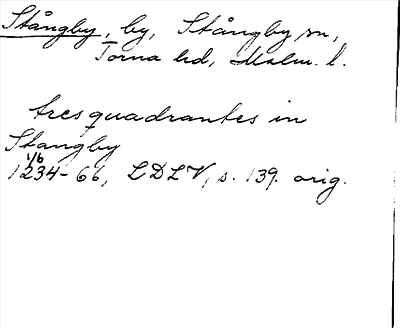 Stångby, by, Stångby sn,
Torna hd, Malm. l.
tres quadrantes in
Stangby
1/6
1234-66, LDLV, s. 139. orig.